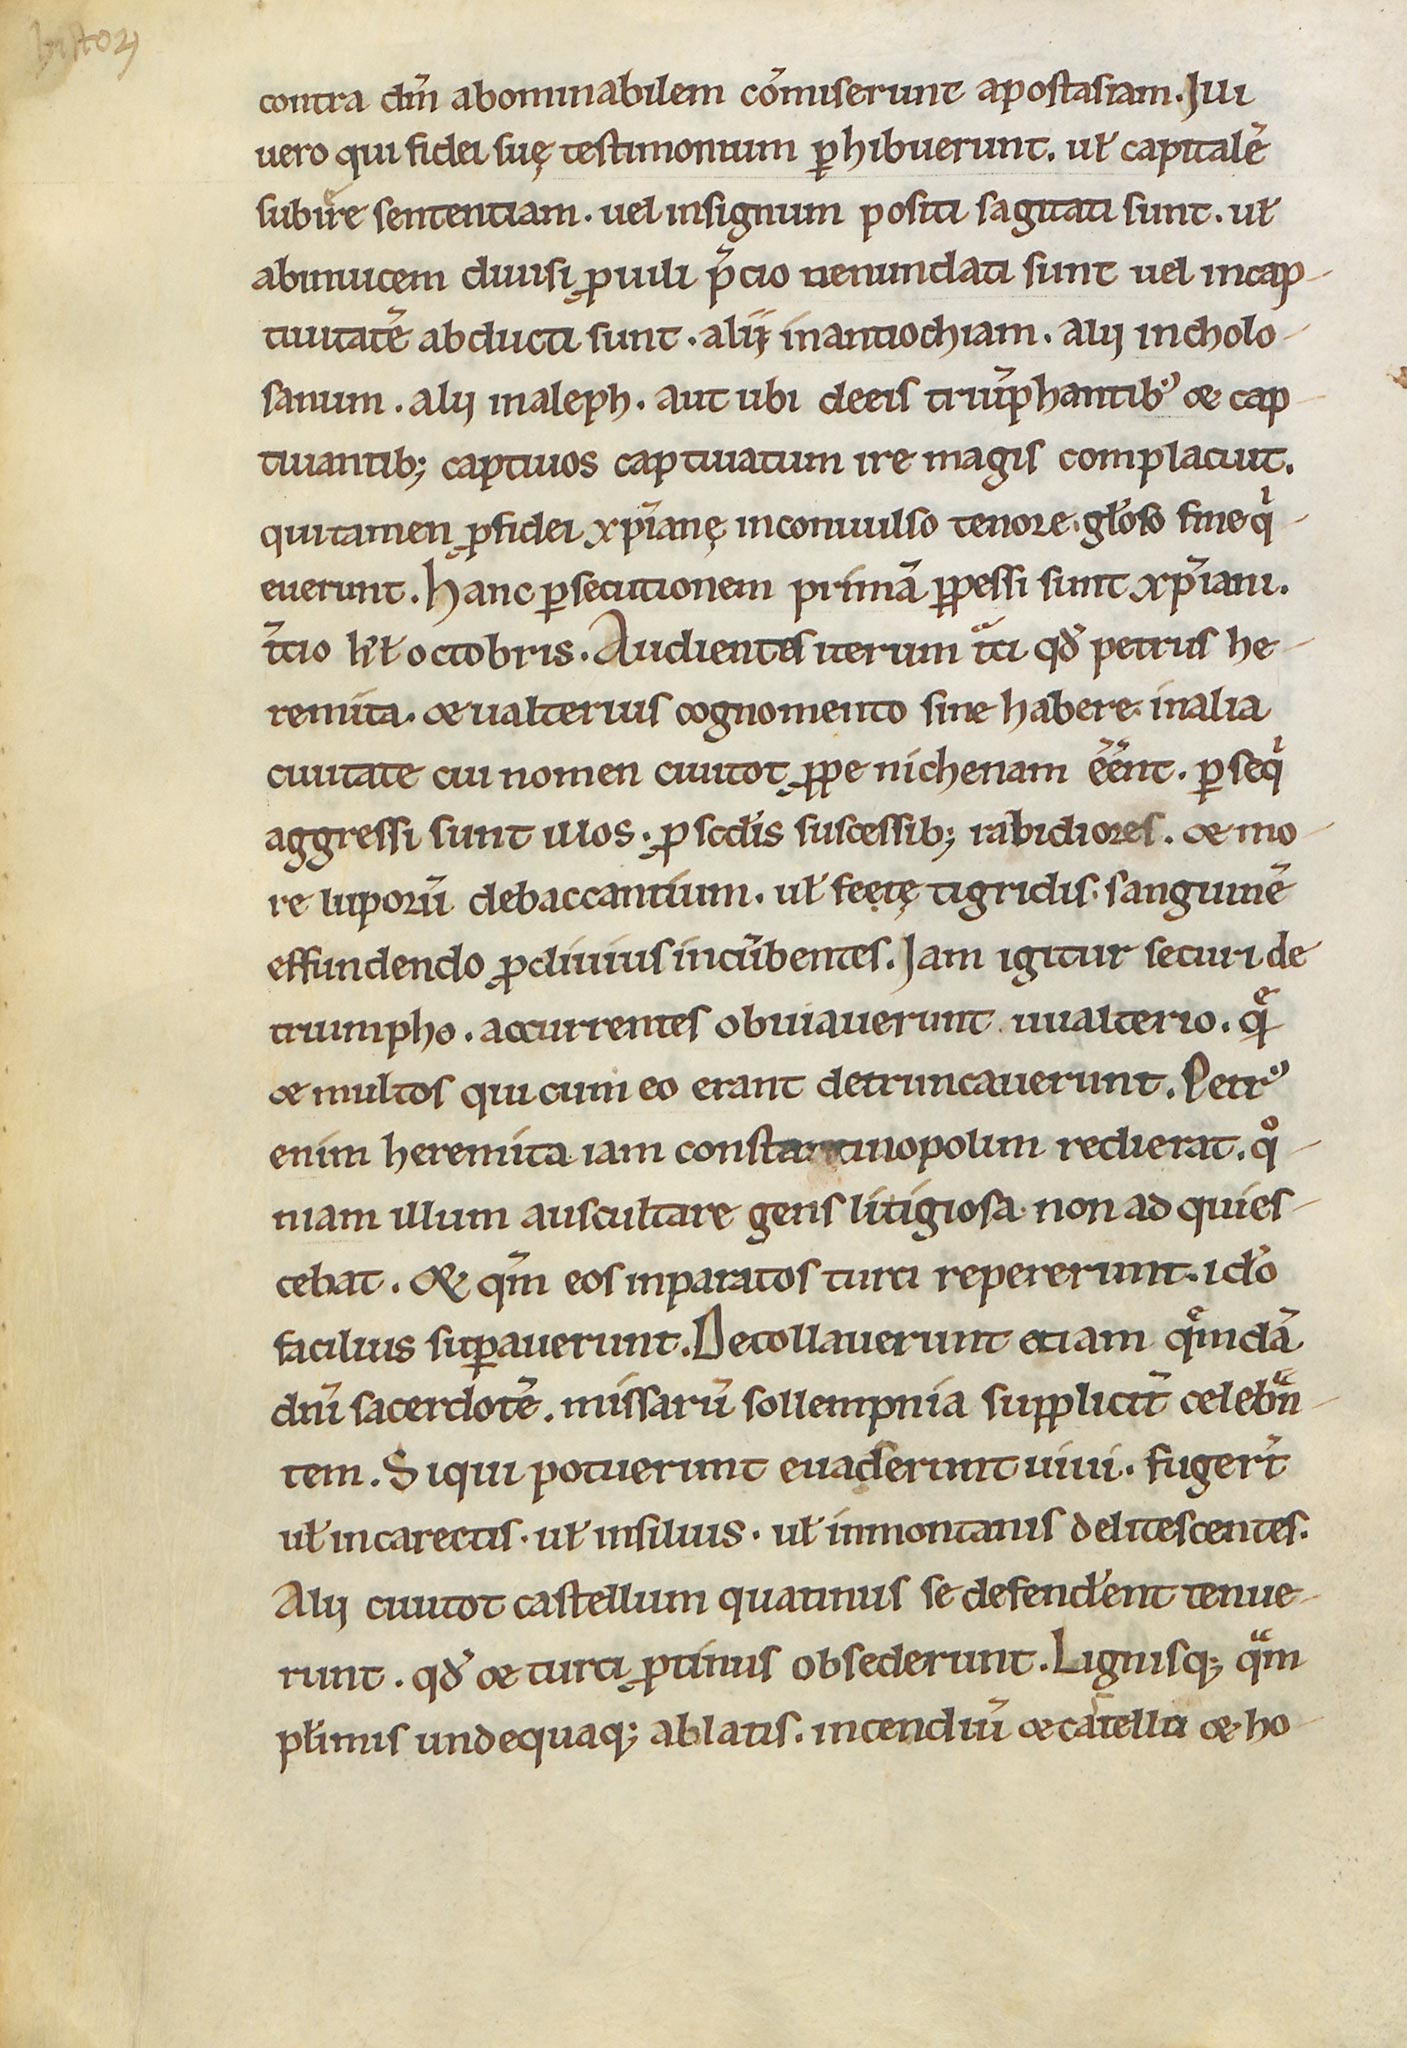 histor
contra dm̄ abominabilem cōmiserunt apostasiam. Jlli
uero qui fidei suę testimonium ꝑhibuerunt. uł capitalē
subire sententiam. uel insignum positi sagittati sunt. uł
abinuicem diuisi ꝓ uili p̄cio uenundati sunt uel incap-
tiuitatē abducti sunt. alij inantiochiam. alij incholo-
sanum. alij inaleph. aut ubi deeis triūphantibꝰ & cap-
tiuantib; captiuos captiuatum ire magis complacuit.
qui tamen ꝓ fidei xp̄ianę inconuulso tenore. gło̕so fine qͥ-
euerunt. Hanc ꝑsecutionem primā ꝑpessi sunt xp̄iani.
t̄cio kł octobris. Audientes iterum tᷓci qđ petrus he-
remita. & ualterius cognomento sine habere. inalia
ciuitate cui nomen ciuitot ꝓpe nichenam eēnt. ꝑseqͥ
aggressi sunt illos. ꝓ scđis suscessib; rabidiores. & mo-
re luporū debaccantium. uł feętę tigridis. sanguinē
effundendo ꝓcliuius incūbentes. Jam igitur securi de
triumpho. accurrentes obuiauerunt uualterio. qͤ
& multos qui cum eo erant detruncauerunt. Petrꝰ
enim heremita iam constantinopolim redierat. qͦ-
niam illum auscultare gens litigiosa non ad quies-
cebat. & qm̄ eos inparatos turci repererunt. idō
facilius suꝑauerunt. Decollauerunt etiam qͤndā
dnī sacerdotē. missarū sollempnia suppliciť celebᷓn-
tem. Siqui potuerunt euaderunt uiui. fugert̄
uł incarectis. uł insiluis. uł inmontanis delitescentes.
Alij ciuitot castellum quatinus se defendert̄ tenue-
runt. qđ & turci ꝓtinus obsederunt. Lignisq; qᷓm
pľimis undequaq; ablatis. incendiū & catelli & ho-